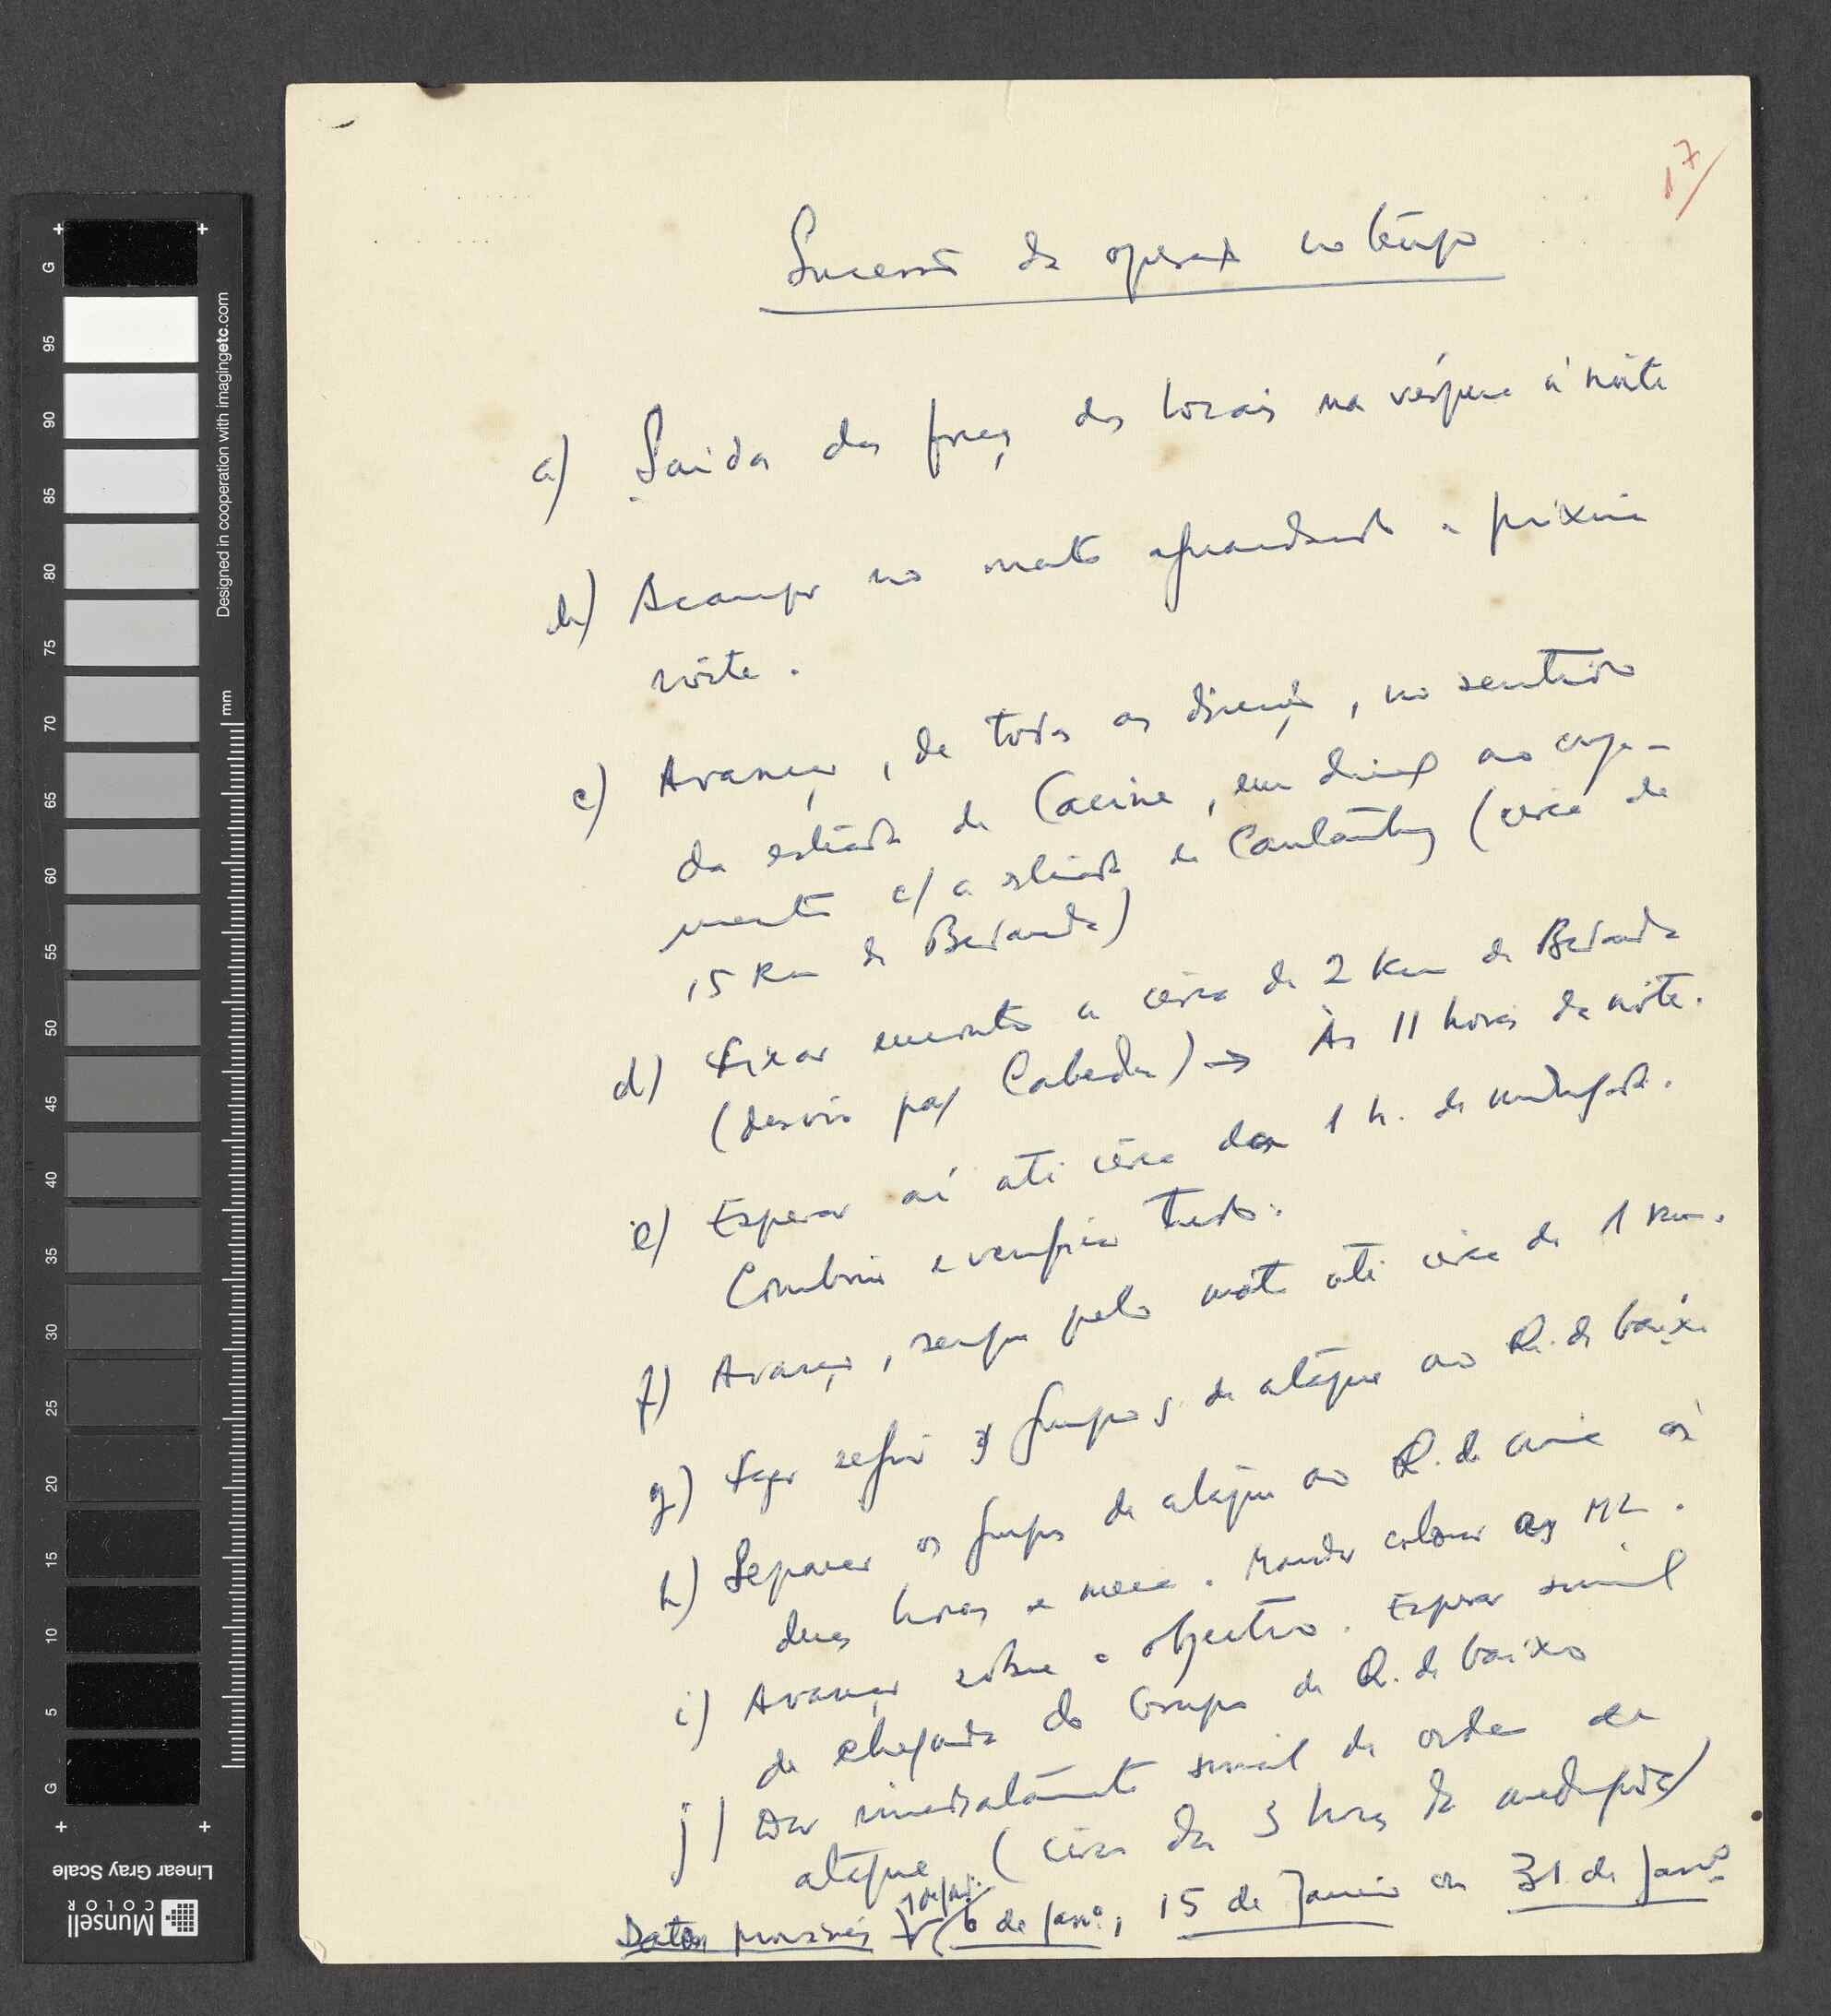 17
Sucessão da operação no tempo
a) Saída das forças dos locais na véspera à noite
b) Acampar no mato aguardando a próxima
noite.
c) Avançar, de todas as direcções, no sentido
da estrada de Cacine, em direcção ao cruza-
mento c/ a estrada de Cantanhez (cerca de
15 Km de Bedanda)
d) Fixar encontro a cêrca de 2 Km de Bedanda
(desvio para Cabedu) → Às 11 horas da noite.
e) Esperar aí até cêrca das 1 h. da madrugada.
Combinar e verificar tudo.
f) Avançar, sempre pelo mato até cêrca de 1 Km.
g) Fazer seguir grupos de ataque ao Q. de baixo
h) Separar os grupos de ataque ao Q. de cima às
duas horas e meia. Mandar colocar as ML.
i) Avançar sôbre o objectivo. Esperar sinal
de chegada do Grupo do Q. de baixo
j) Dar imediatamente sinal de ordem de
ataque (cêrca das 3 horas da madrugada)
Datas possíveis (6 de Janº., 15 de Janeiro ou 31 de Janº
G
95
90
85
80
75
70
65
60
55
50
45
40
35
30
25
20
15
10
5
G
mm
Designed in cooperation with imagingetc.com
Linear Gray Scale
Munsell
COLOR